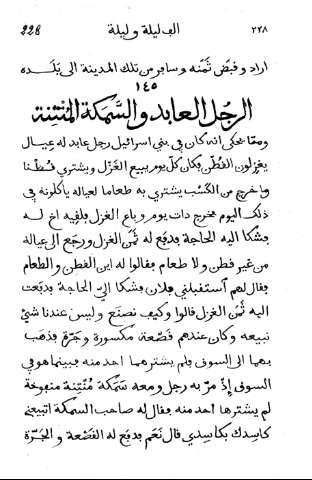 ٢٢٨ الف ليلة وليلة 228
اراد وقبض ثمنه وسافر من تلك المدينة الى بلده
١٤٥
الرجل العابد والسمكة المنتنة
ومما يحكى انه كان في بني اسرائيل رجل عابد له عيال
يغزلون القطن فكان كل يوم يبيع الغزل ويشتري قطنا
وما خرج من الكسب يشتري به طعاما لعياله ياكلونه في
ذلك اليوم فخرج ذات يوم وباع الغزل فلقيه اخ له
فشكا اليه الحاجة فدفع له ثمن الغزل ورجع الى عياله
من غير قطن ولا طعام فقالوا له اين القطن والطعام
فقال لهم استقبلني فلان فشكا اليّ الحاجة فدفعت
اليه ثمن الغزل قالوا وكيف نصنع وليس عندنا شئ
نبيعه وكان عندهم قصعة مكسورة وجرّة فذهب
بهما الى السوق فلم يشترهما احد منه فبينما هو في
السوق إذ مرّ به رجل ومعه سمكة منتنة منفوخة
لم يشترها احد منه فقال له صاحب السمكة اتبيعني
كاسدك بكاسدي قال نعم فدفع له القصعة والجرّة